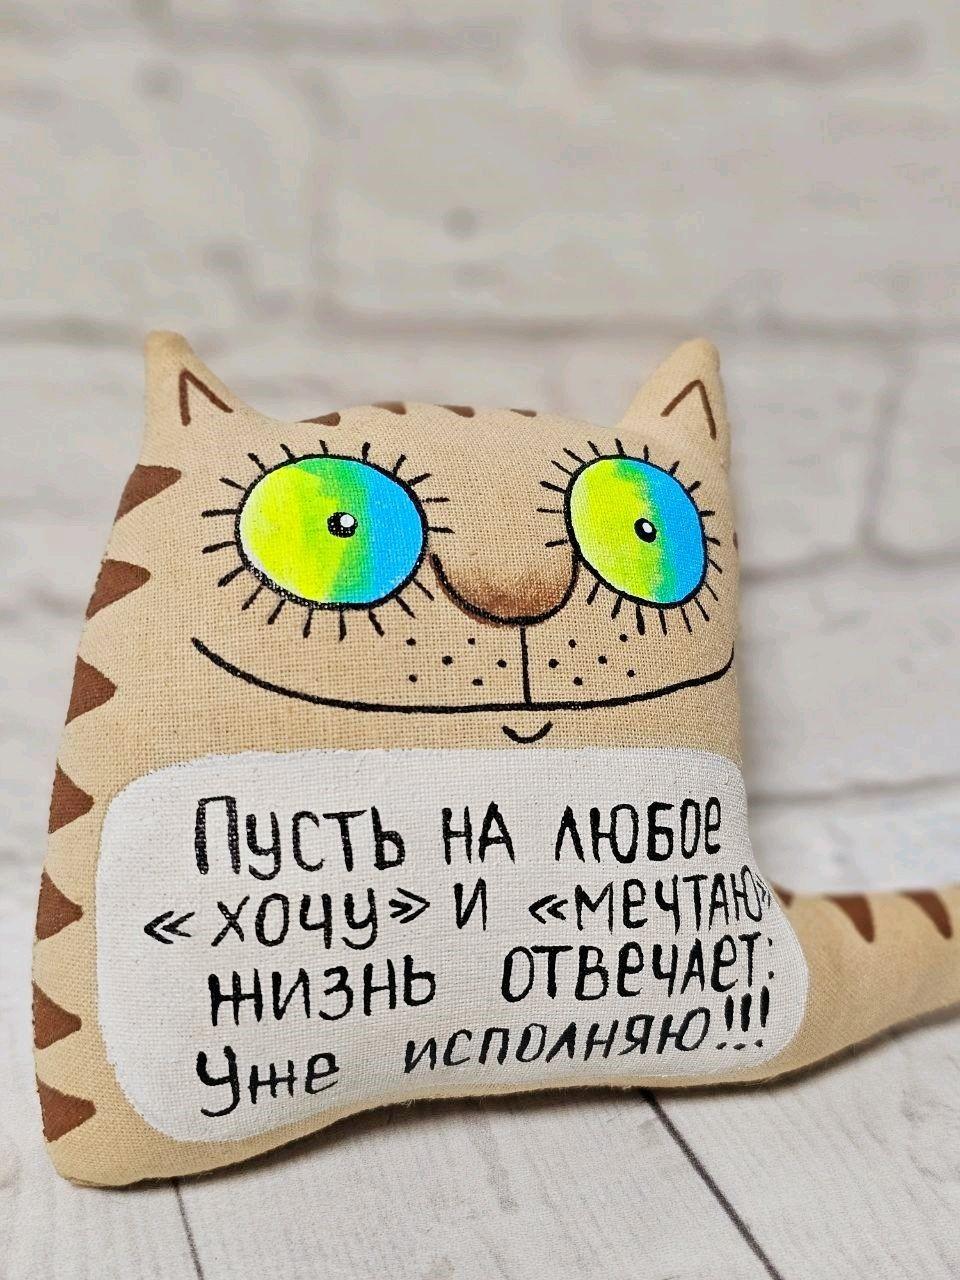 Пусть на любое
«хочу» и «мечтаю»
жизнь отвечает:
Уже исполняю!!!